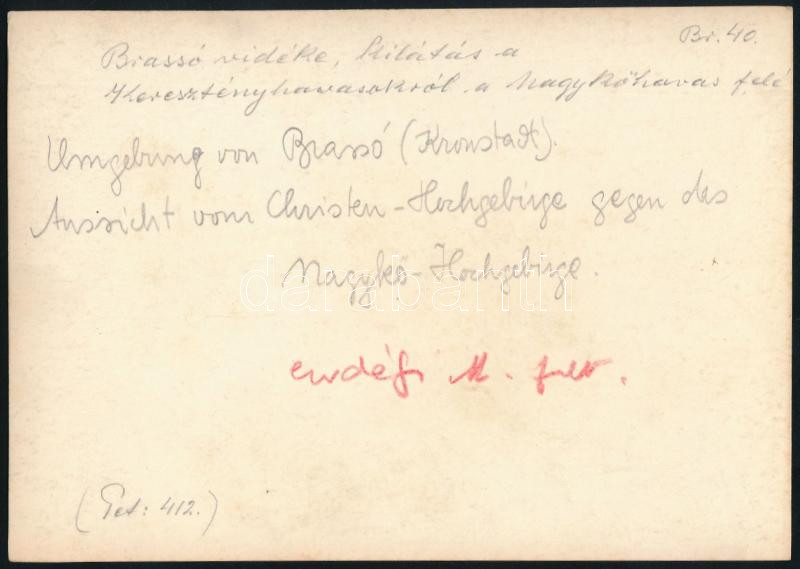 Br. 40.
Brassó vidéke, kilátás a
Keresztényhavasokról a Nagykőhavas felé
Umgebung von Brassó (Kronstadt).
Aussicht vom Christen-Hochgebirge gegen das
Nagykő-Hochgebirge.
darabanth
Erdélyi M. felv.
(Tet: 412.)